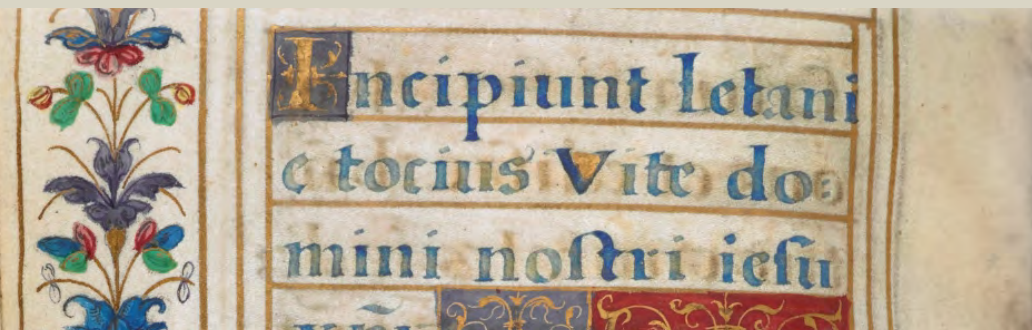 Incipiunt letani
e tocius Vite do
mini nostri iesu